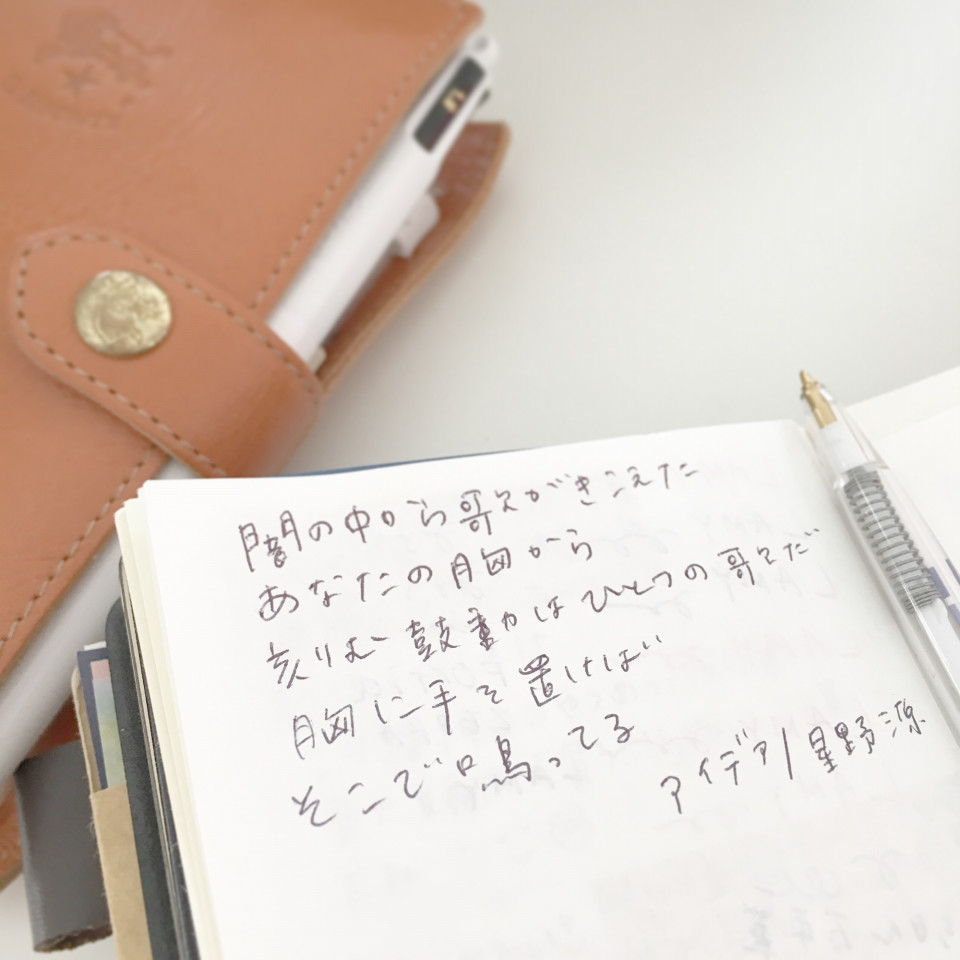 闇の中から歌がきこえた
あなたの胸から
刻む鼓動はひとつの歌だ
胸に手を置けば
そこで鳴ってる
アイデア/星野源